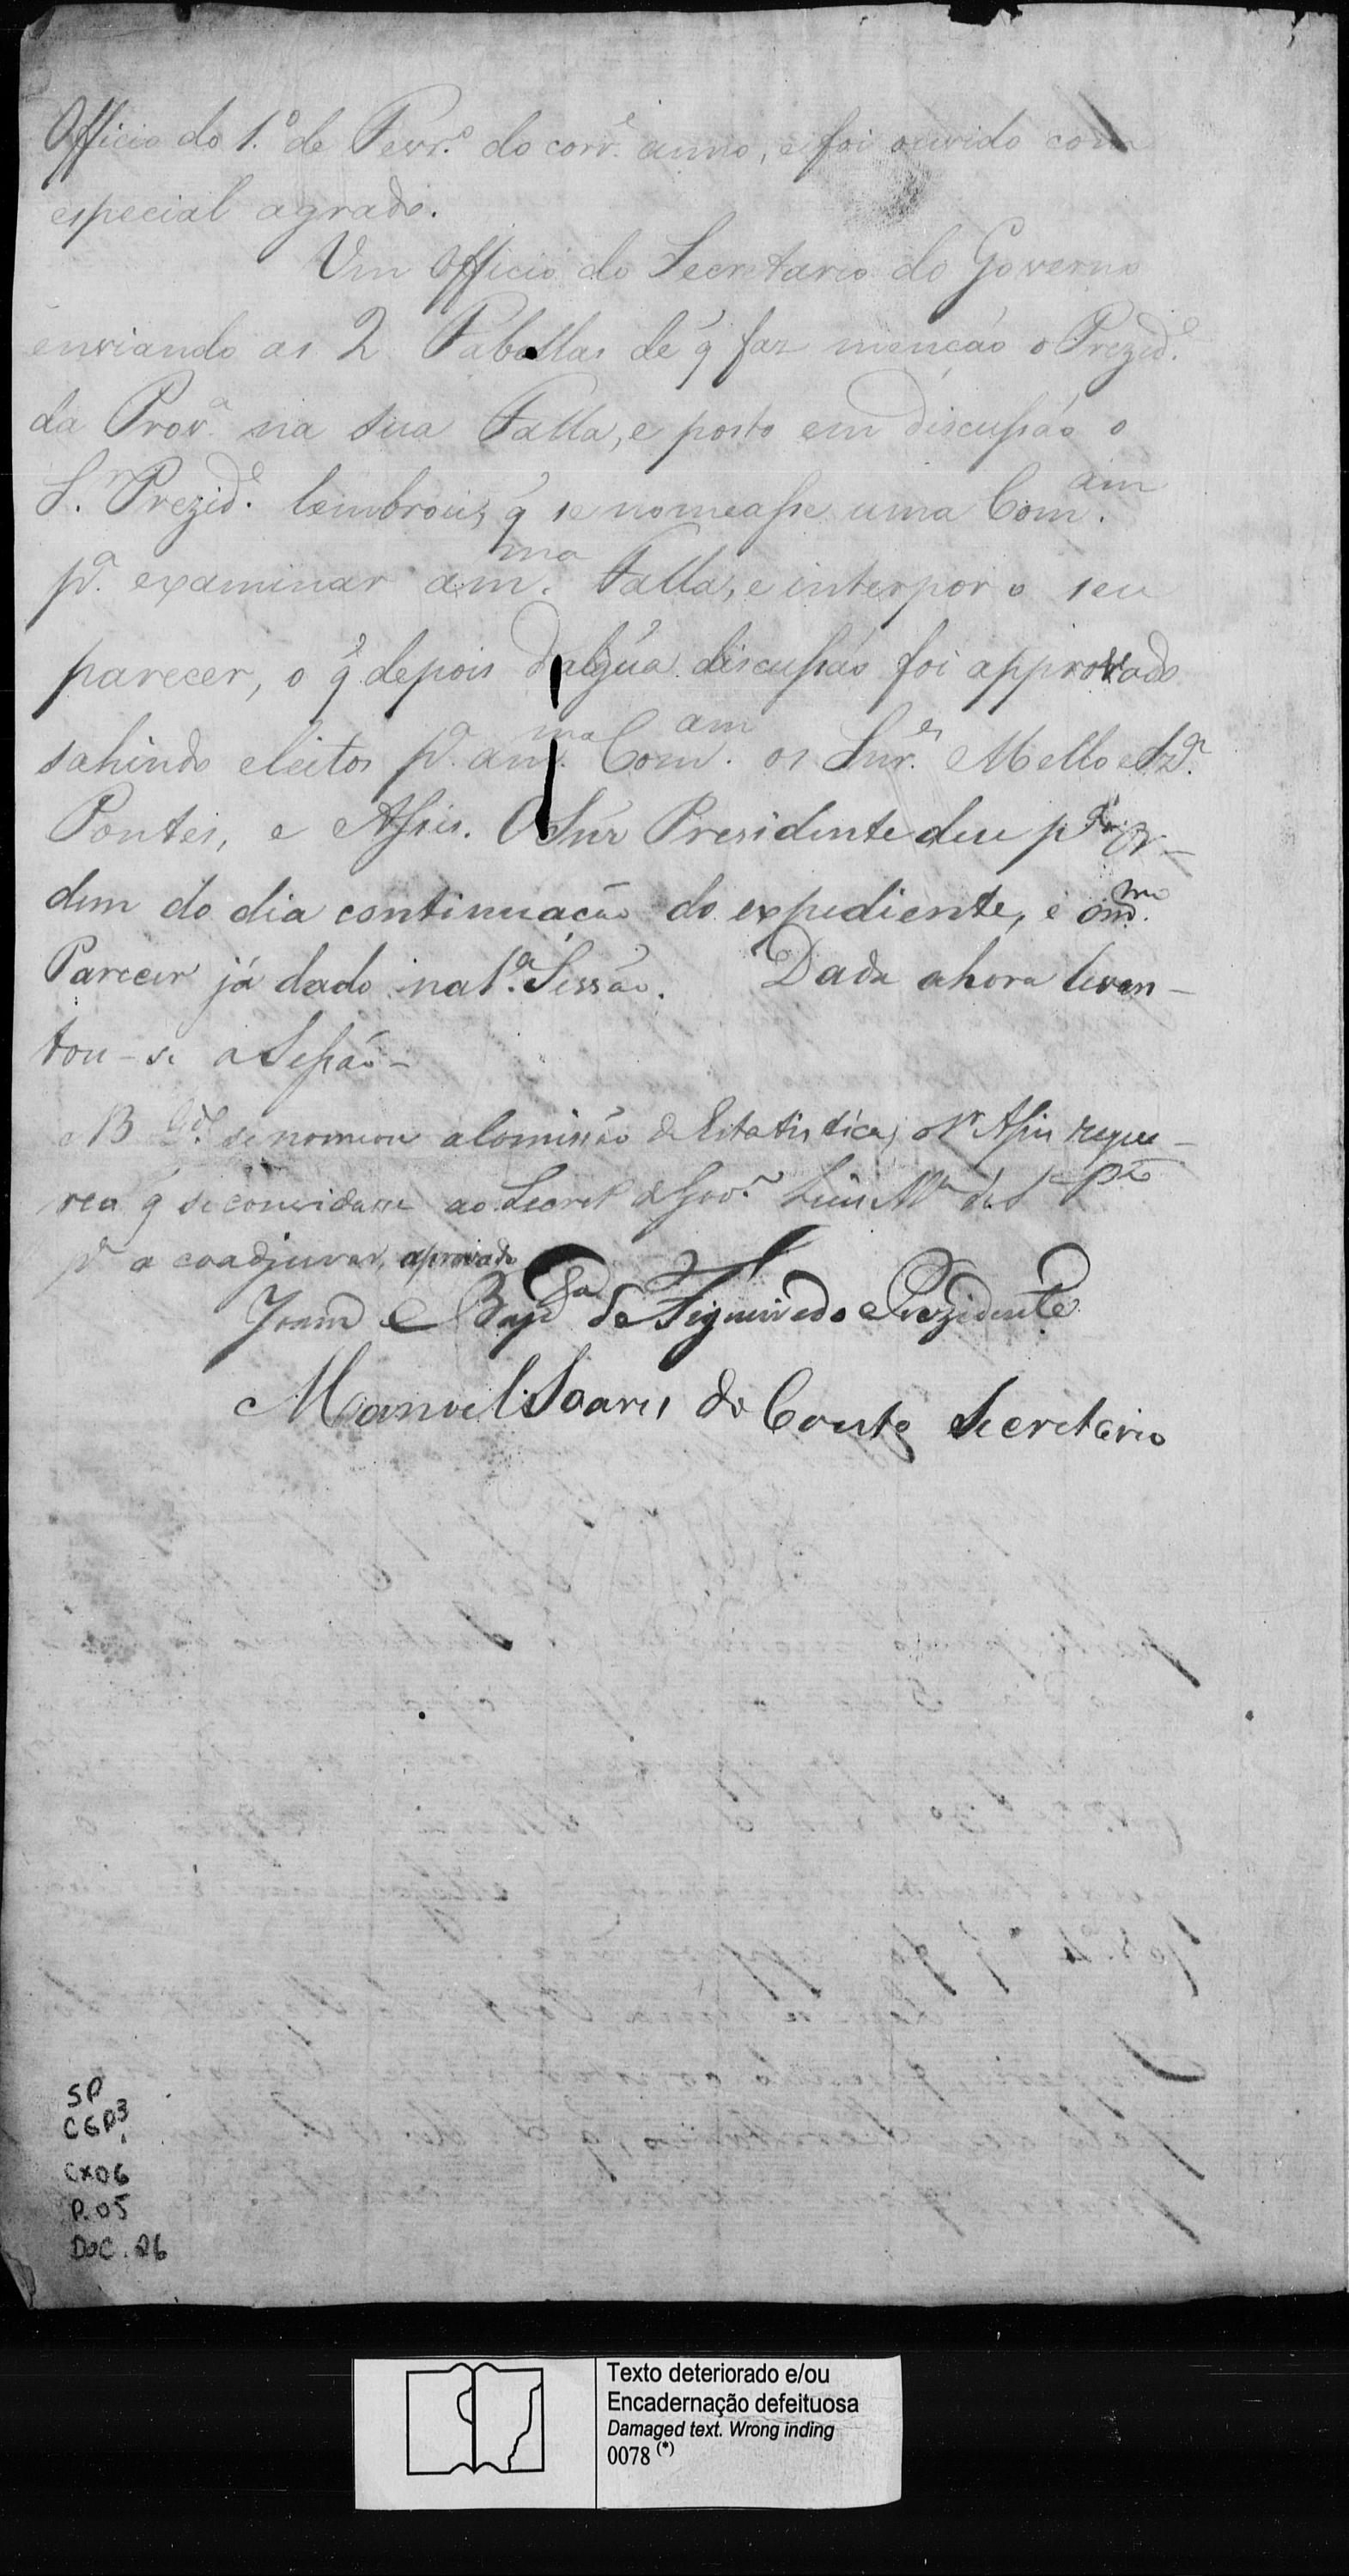 Officio do 1.º de Fevr.º do corr.e anno, e foi ouvido com
especial agrado.
Um Officio do Secretario do Governo
enviando as 2 Tabellas de q̃ faz menção o Prezid.e
da Prov.a na sua Falla, e posto em discussão o
S.r Prezid.e lembrou, q̃ se nomeasse uma Com.am
p.a examinar a m.ma Falla, e interpor o seu
parecer, o q̃ depois d'algũa discussão foi approvado
sahindo eleitos p.a a m.ma Com.am os Snr.es Mello
Pontes, e Assis. O Snr Presidente deu p.a Or-
dem do dia continuação do expediente, e o m.mo
Parecer já dado na 1.a Sessão. Dada a hora levan-
tou-se a Sessão-
NB Qd.o se nomeou a Comissão de Estatistica, o Sr Assis reque-
reo q̃ se convidasse ao Secret.o de Gov.o Luis M.a de
p.a a coadjuvar, aprovado
de Figueiredo Prezidente
Manoel Soares do Couto Secretario
SP
CGP3
CX06
P.05
DOC. 26
Texto deteriorado e/ou
Encadernação defeituosa
Damaged text. Wrong inding
0078 (*)